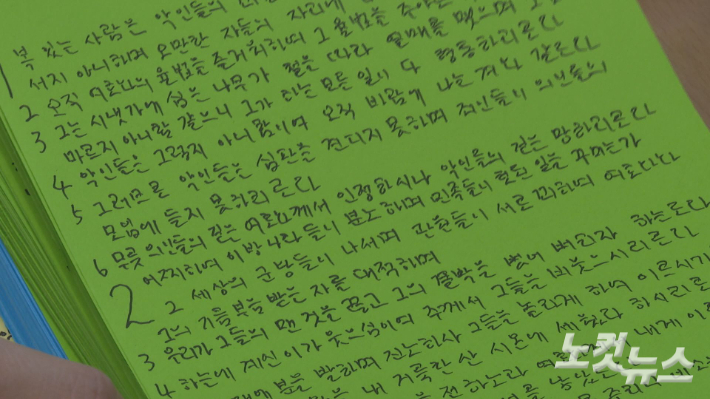 복 있는 사람은 악인들의
1 서지 아니하며 오만한 자들의 자리에
2 오직 여호와의 율법을 즐거워하여 그 율법을 주야
3 그는 시냇가에 심은 나무가 철을 따라 열매를 맺으며 그
마르지 아니함 같으니 그가 하는 모든 일이 다 형통하리로다
4 악인들은 그렇지 아니함이여 오직 바람에 나는 겨와 같도다
5 그러므로 악인들은 심판을 견디지 못하며 죄인들이 의인들의
모임에 들지 못하리로다
6 무릇 의인들의 길은 여호와께서 인정하시나 악인들의 길은 망하리로다
2 어찌하여 이방 나라들이 분노하며 민족들이 헛된 일을 꾸미는가
2 세상의 군왕들이 나서며 관원들이 서로 꾀하여 여호와와
그의 기름 부음 받은 자를 대적하며
3 우리가 그들의 맨 것을 끊고 그의 결박을 벗어 버리자 하는도다
4 하늘에 계신 이가 웃으심이여 주께서 그들을 비웃으시리로다
분을 발하며 진노하사 그들을 놀라게 하여 이르시기
내 거룩한 산 시온에 세웠다 하시리로
을 전하노라 내게 이
노컷뉴스